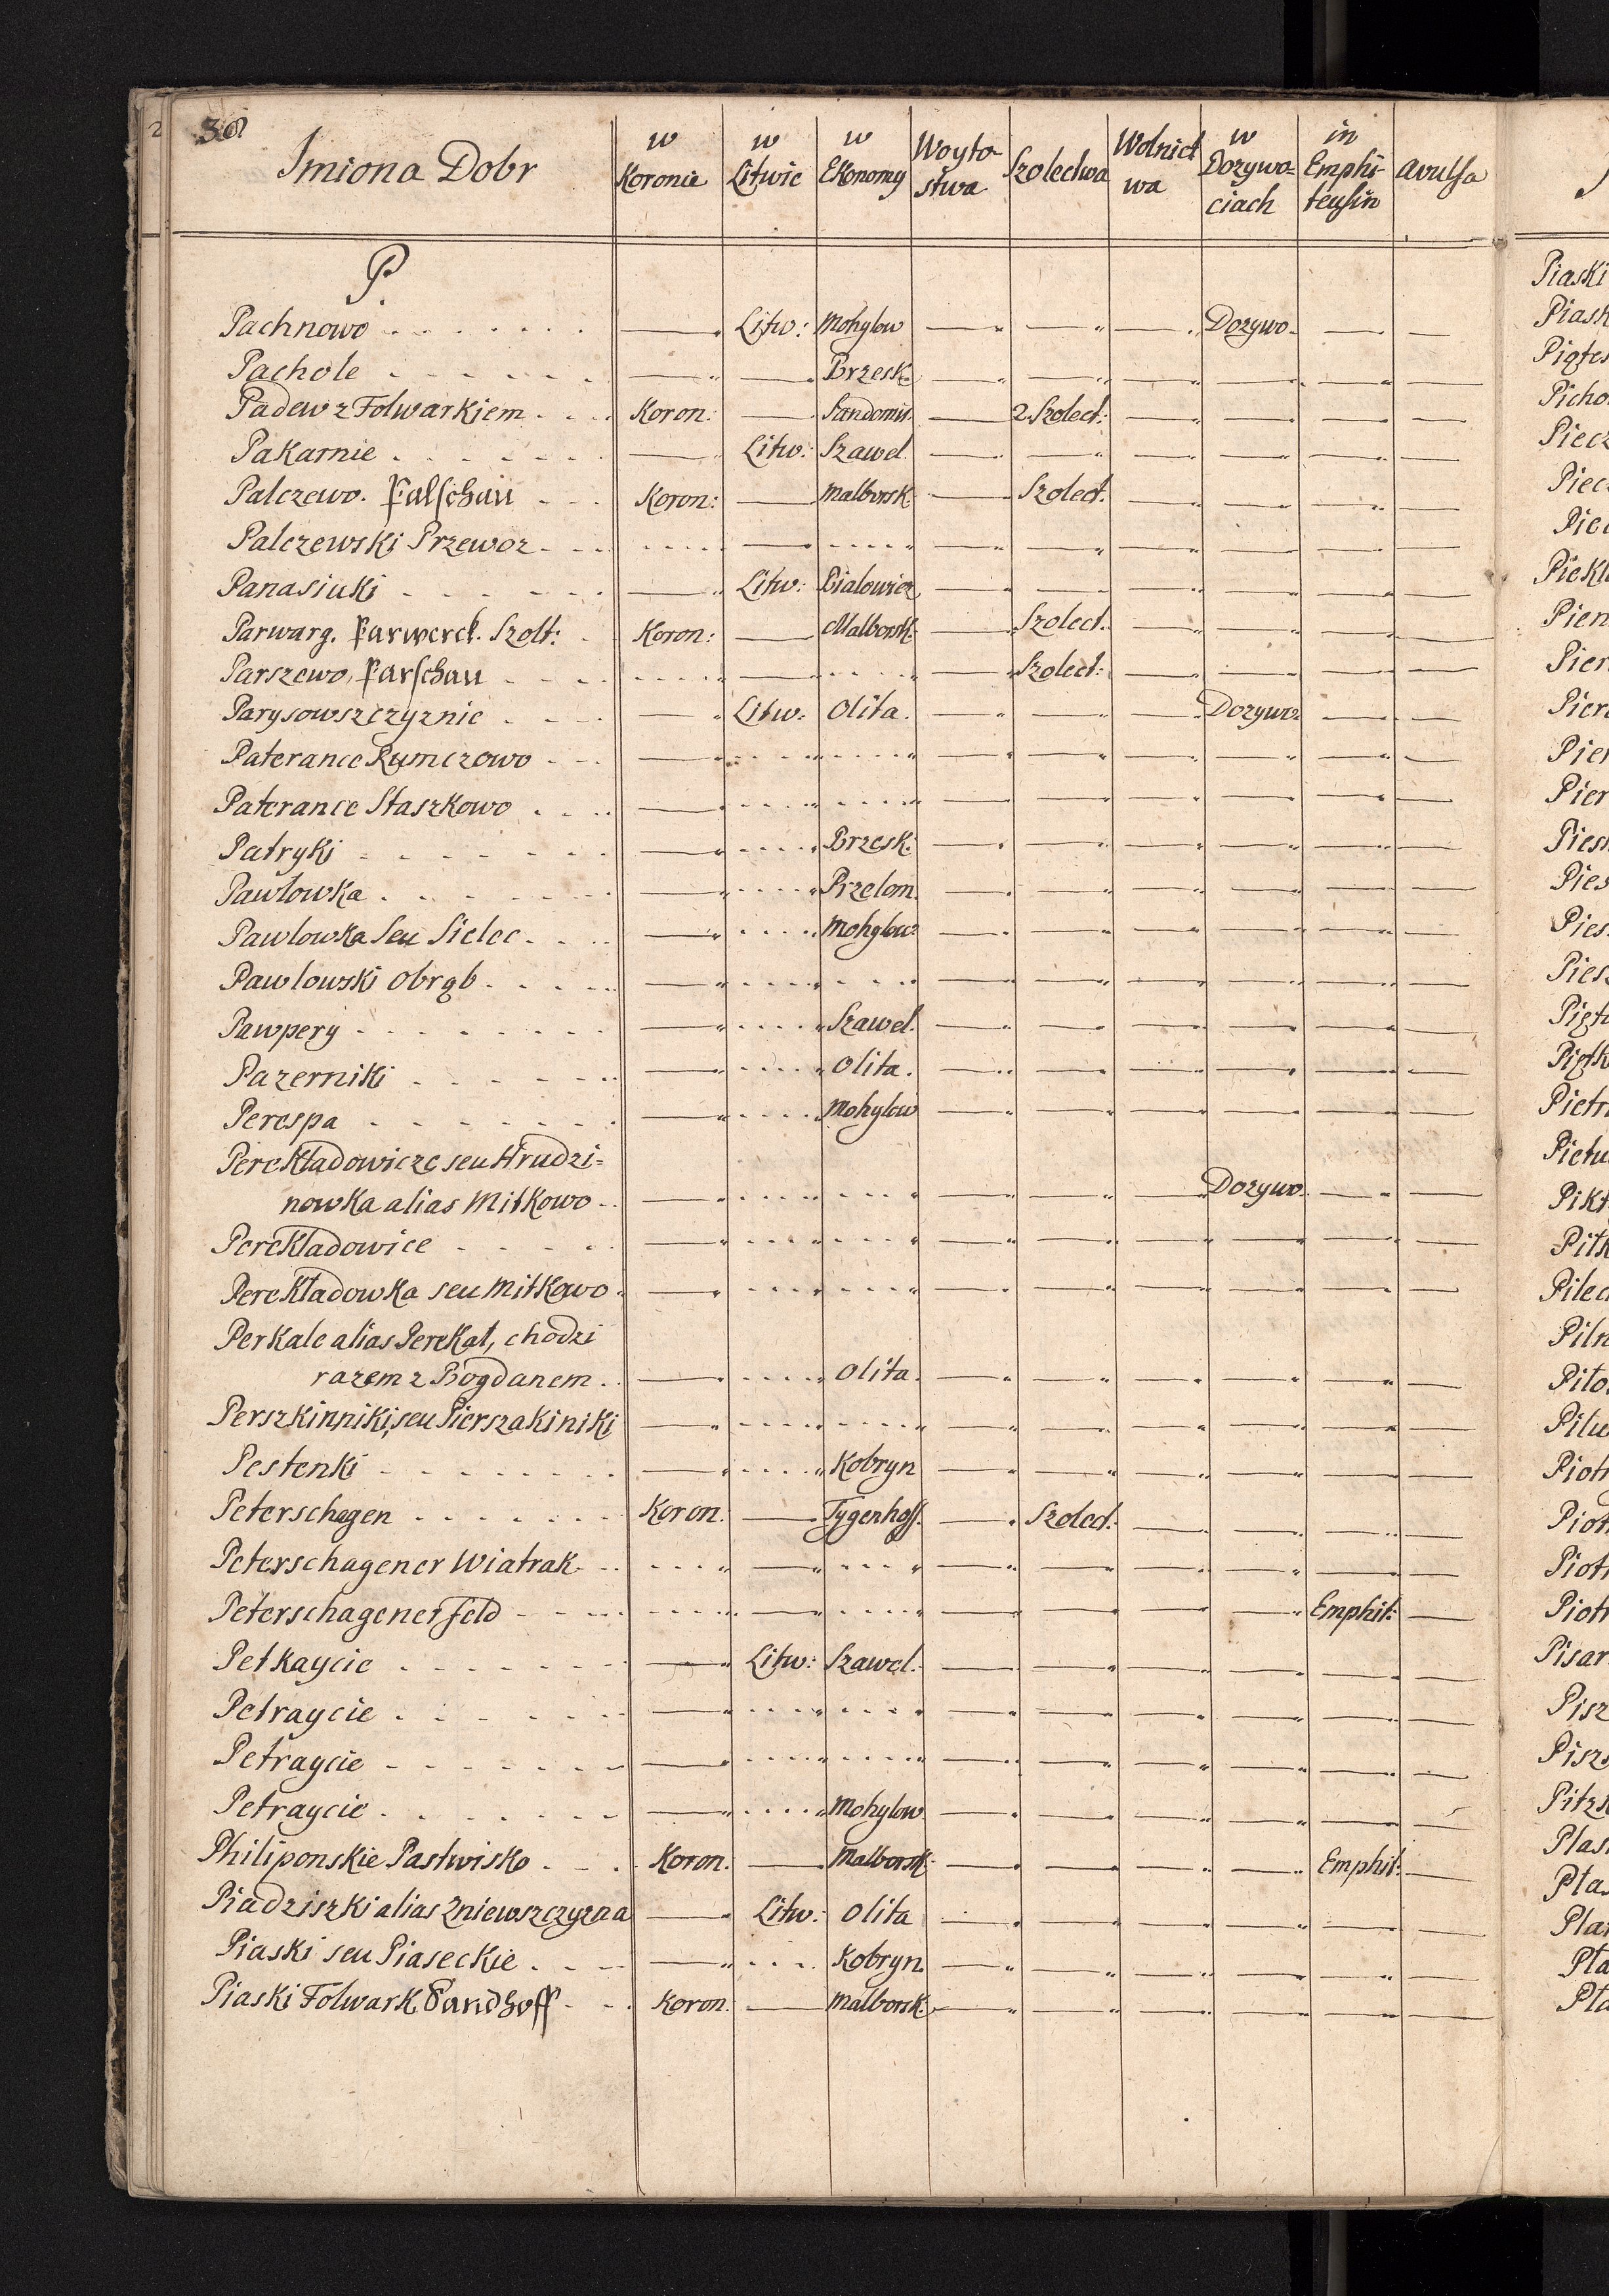 38
Imiona Dobr | w Koronie | w Litwie | w Ekonomy | Woyto-stwa | Szolectwa | Wolnict wa | w Dozywo=ciach | in Emphi-teusin | avulsa
P.
Pachnowo - - - | — | Litw: | Mohylow | — | — | — | Dozywo. | — | —
Pachole - - - | — | — | Brzesk: | — | — | — | — | — | —
Padew z Folwarkiem - - - | Koron: | — | Sandomir. | — | 2. Szolect: | — | — | — | —
Pakarnie - - - | — | Litw: | Szawel. | — | — | — | — | — | —
Palczewo. Palschau - - - | Koron: | — | Malborsk | — | Szolect. | — | — | — | —
Palczewski Przewoz - - - | - - - - | — | - - - - | — | — | — | — | — | —
Panasiuki - - - | — | Litw: | Bialowiez | — | — | — | — | — | —
Parwarg. Parwerck. Szolt: | Koron: | — | Malborsk: | — | Szolect. | — | — | — | —
Parszewo, Parschau - - - | - - - - | — | - - - - | — | Szolect: | — | — | — | —
Parysowszczyznie - - - | — | Litw: | Olita. | — | — | — | Dozywo: | — | —
Paterance Rumczowo - - - | — | - - - - | - - - - | — | — | — | — | — | —
Paterance Staszkowo - - - | — | - - - - | - - - - | — | — | — | — | — | —
Patryki - - - | — | - - - - | Brzesk: | — | — | — | — | — | —
Pawlowka - - - | — | - - - - | Przelom. | — | — | — | — | — | —
Pawlowka seu Sielec - - - | — | - - - - | Mohylow: | — | — | — | — | — | —
Pawlowski Obrąb - - - | — | - - - - | - - - - | — | — | — | — | — | —
Pawpery - - - | — | - - - - | Szawel. | — | — | — | — | — | —
Pazerniki - - - | — | - - - - | Olita. | — | — | — | — | — | —
Perespa - - - | — | - - - - | Mohylow | — | — | — | — | — | —
Perekładowicze seu Hrudzi=
nowka alias Mitkowo - - | — | - - - - | - - - - | — | — | — | Dozywo. | — | —
Perekładowice - - - | — | - - - - | - - - - | — | — | — | — | — | —
Perekładowka seu Mitkowo. | — | - - - - | - - - - | — | — | — | — | — | —
Perkale alias Perekal, chodzi
razem z Bogdanem. . | — | - - - - | Olita. | — | — | — | — | — | —
Perszkinniki, seu Pierszakiniki | — | - - - - | - - - - | — | — | — | — | — | —
Pestenki - - - | — | - - - - | Kobryn | — | — | — | — | — | —
Peterschagen - - - | Koron. | — | Tygenhoff. | — | Szolect. | — | — | — | —
Peterschagener Wiatrak - - | - - - - | — | - - - - | — | — | — | — | — | —
Peterschagener Feld - - - | - - - - | — | - - - - | — | — | — | — | Emphit: | —
Petkaycie - - - | — | Litw: | Szawel. | — | — | — | — | — | —
Petraycie - - - | — | - - - - | - - - - | — | — | — | — | — | —
Petraycie - - - | — | - - - - | - - - - | — | — | — | — | — | —
Petraycie - - - | — | - - - - | Mohylow | — | — | — | — | — | —
Philiponskie Pastwisko - - - | Koron. | — | Malborsk: | — | — | — | — | Emphit: | —
Piadziszki alias Zniewszczyzna | — | Litw: | Olita | — | — | — | — | — | —
Piaski seu Piaseckie - - - | — | - - - | Kobryn. | — | — | — | — | — | —
Piaski Folwark Sandhoff - - - | Koron. | — | Malborsk. | — | — | — | — | — | —